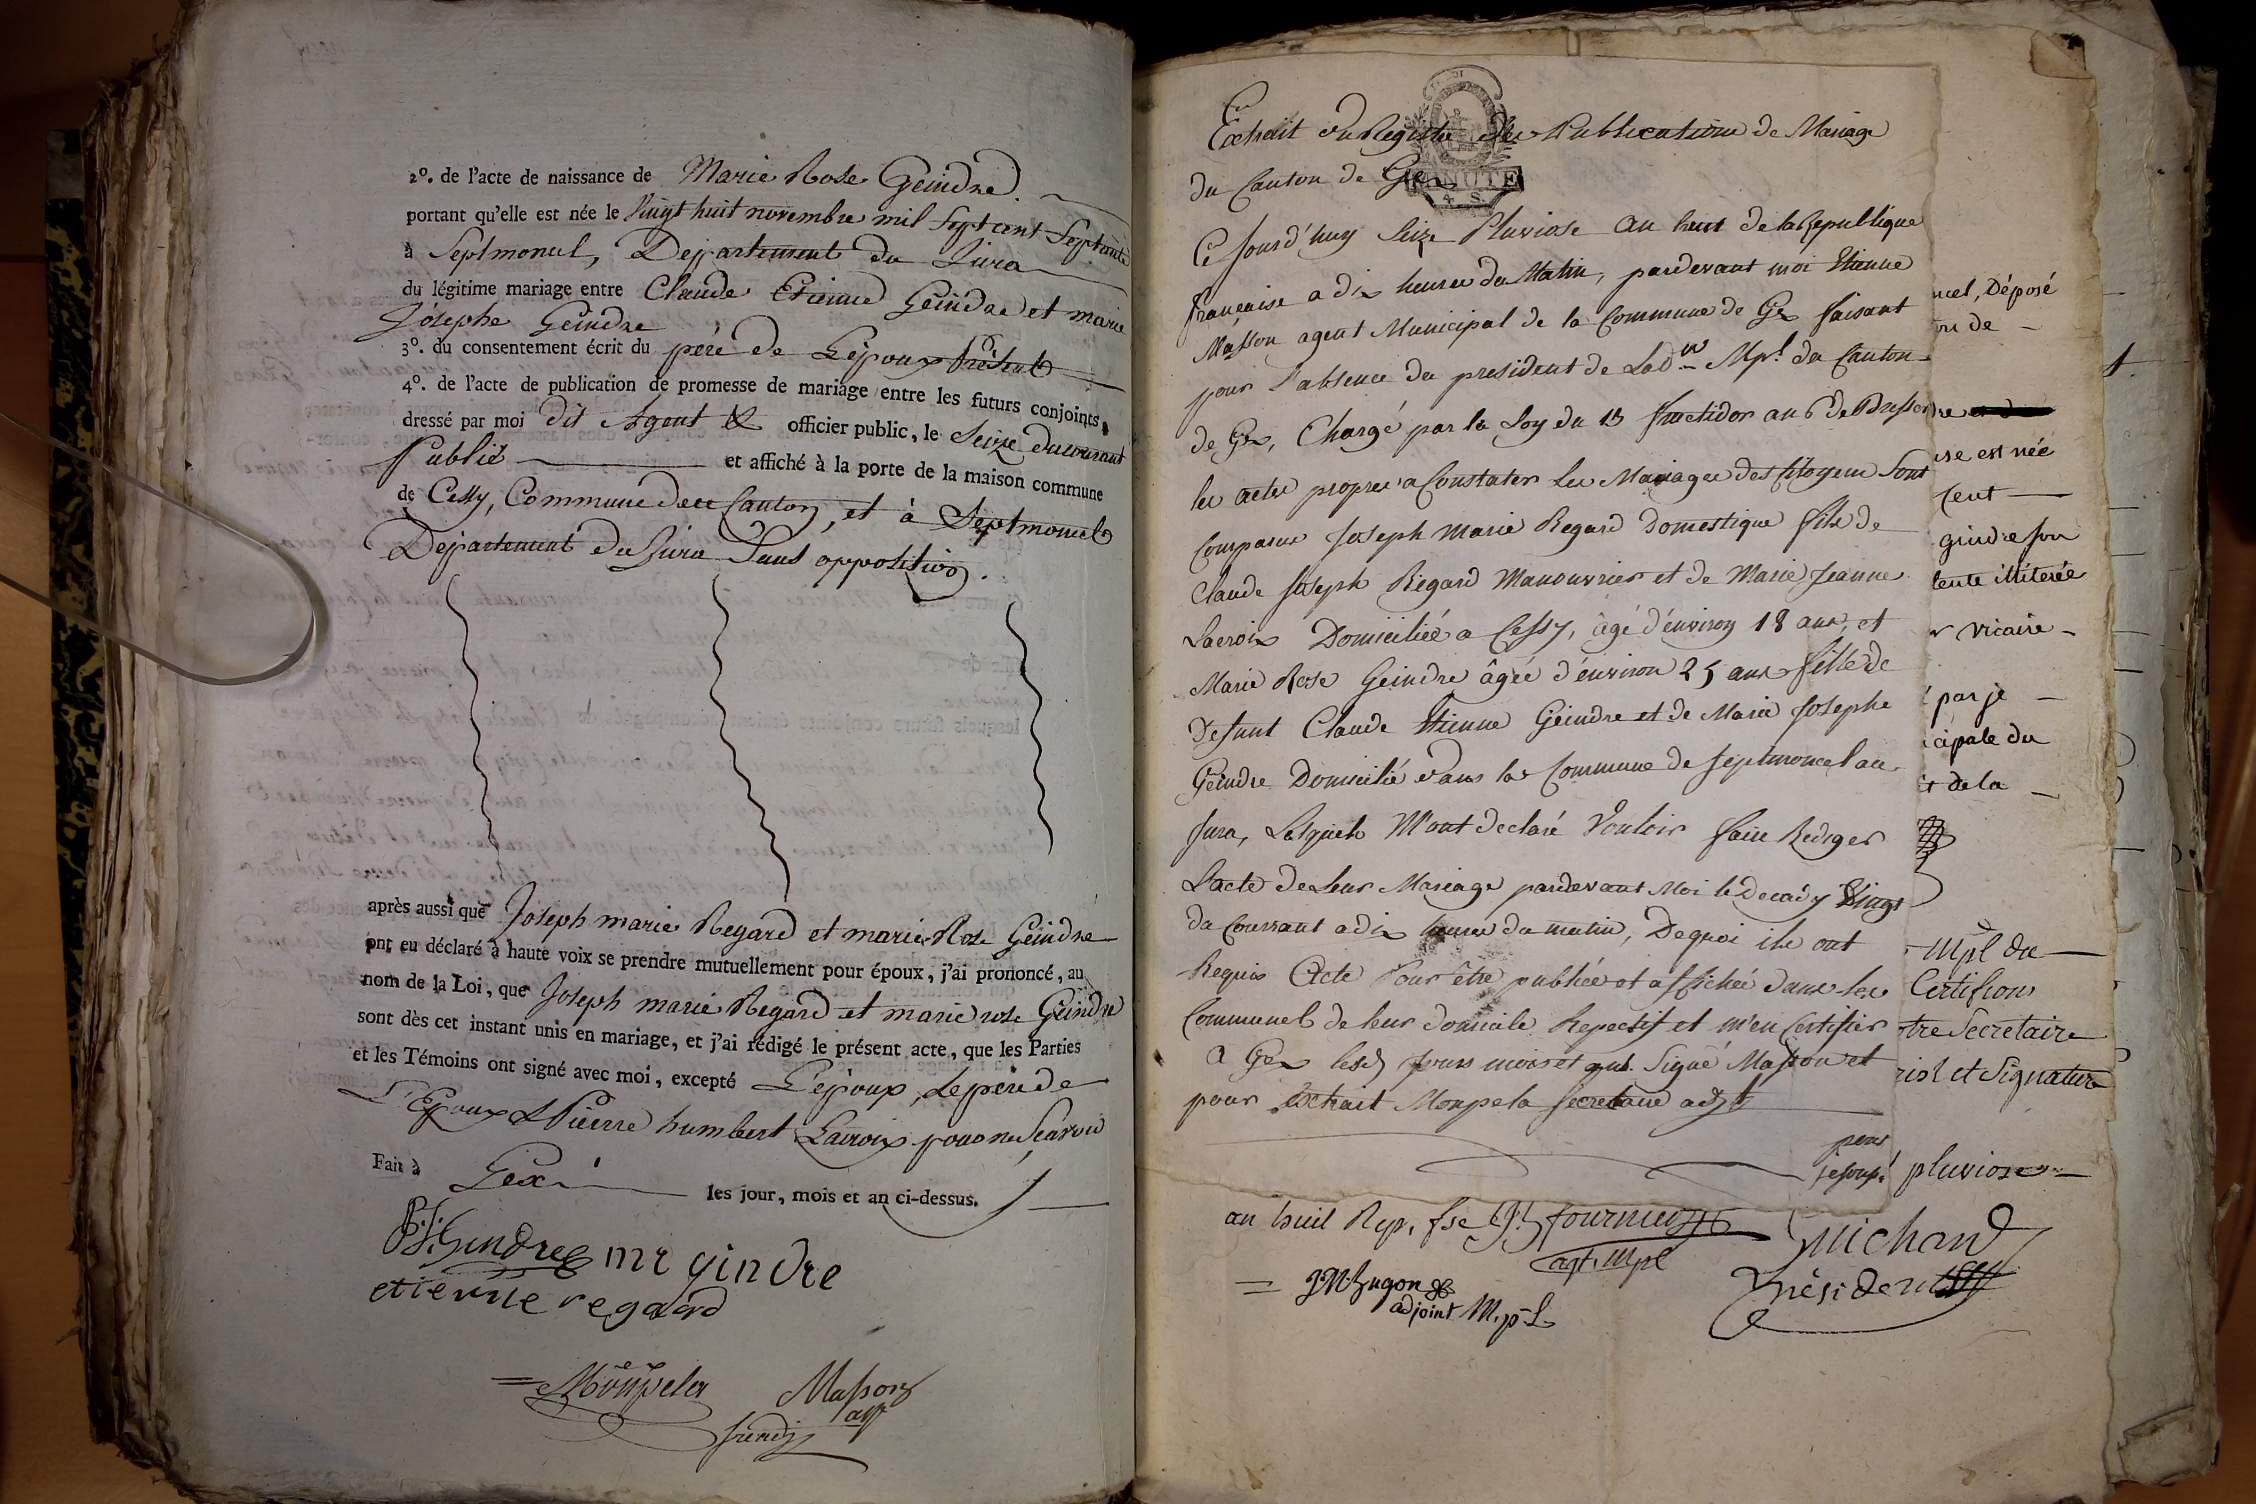 2º. de l'acte de naissance de Marie Rose Geindre
portant qu'elle est née le Vingt huit novembre mil sept cent septante
à Septmoncel, Departement du Jura
du légitime mariage entre Claude Etienne Geindre et marie
Josephe Geindre
3º. du consentement écrit du père de L'époux présent
4º. de l'acte de publication de promesse de mariage entre les futurs conjoints,
dressé par moi dit Agent & officier public, le Seize du courant
Publié et affiché à la porte de la maison commune
de Cessy, Commune de ce Canton, et à Septmoncel
Departement du Jura Sans opposition.
après aussi que Joseph marie Regard et marie Rose Geindre
ont eu déclaré à haute voix se prendre mutuellement pour époux, j'ai prononcé, au
nom de la Loi, que Joseph marie Regard et marie rose Geindre
sont dès cet instant unis en mariage, et j'ai rédigé le présent acte, que les Parties
et les Témoins ont signé avec moi, excepté L'époux, le père de
L'Epoux & Pierre humbert Lacroix pour ne Scavoir
Fait à Gex les jour, mois et an ci-dessus.
Gindre mr gindre
etienne regard
Moupela Masson
agt
Extrait du Registre des Publications de Mariage
du Canton de Gex
MINUTE
4. S.
Ce Jourd'huy Seize Pluviose an huit de la Republique
francaise a dix heures du Matin, pardevant moi Etienne
Masson agent Municipal de la Commune de Gex faisant
pour l'absence du president de Lad.on Mpl. du Canton
de Gex, Chargé par la Loy du 13 fructidor an 6 de Dresser
les actes propres a Constater les Mariages des Citoyens Sont
Comparus Joseph Marie Regard Domestique fils de
Claude Joseph Regard Manouvrier et de Marie Jeanne
Lacroix Domiciliée a Cessy, âgé d'environ 18 ans, et
Marie Rose Geindre âgée d'environ 25 ans fille de
Defunt Claude Etienne Geindre et de Marie Josephe
Geindre Domicilié dans la Commune de Septmoncel au
Jura, Lesquels M'ont declaré Vouloir faire Rediger
L'acte de Leur Mariage pardevant Moi le Decady Vingt
du Courrant a dix heures du matin, De quoi ils ont
Requis Acte Pour être publiée et affichée dans les
Communes de leur domicile Respectif et m'en Certifier
A Gex lesd. jours mois et an. Signé Masson et
pour Extrait Moupela Secretaire adjt
ncel, Déposé
on de
re
use est née
cent
gindre son
tente illiterée
r vicaire
é par je
icipale du
et de la
Mpl du
Certifions
otre Secretaire
et Signature
pluviose
an huit Rep. fse fournier
agt. Mpl
Michaud
Président
J M hugon
adjoint M.pL